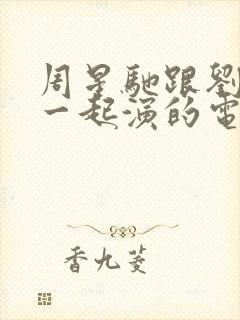 周星馳跟劉
一起演的電
香九菱